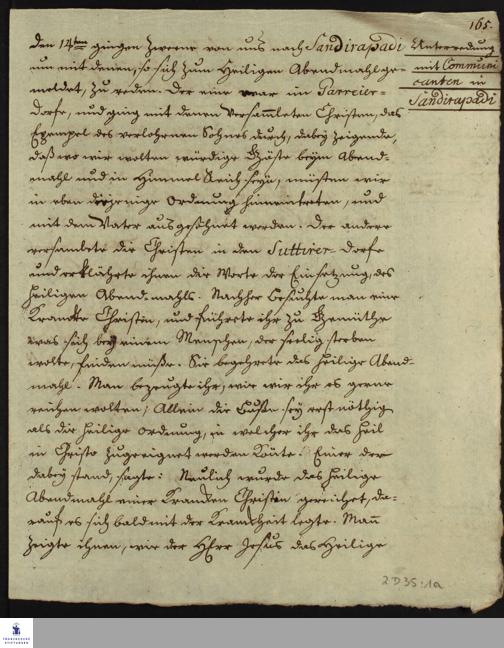 165.
Unterredung
mit Communi
canten in
Sandirapadi
Den 14ten gingen Zweene von uns nach Sandirapadi
um mit denen, so sich zum Heiligen Abendmahl ge-
meldet, zu reden. Der eine war im Parreier-
Dorfe, und ging mit denen versamleten Christen, das
Exempel des verlohrnen Sohnes durch, dabey zeigende,
daß wo wir wolten würdige Gäste beym Abend-
mahl und im Himmel Reich seyn, müsten wir
in eben diejenige Ordnung hineintreten, und
mit dem Vater ausgesöhnet werden. Der andere
versamlete die Christen in den Suttirer Dorfe
und erklährete ihnen die Worte der Einsetzung des
Heiligen Abend-mahls. Nachher besuchte man eine
Krancke Christin, und führete ihr zu Gemüthe
was sich bey einem Menschen, der seelig sterben
wolte, finden müße. Sie begehrete das heilige Abend-
mahl. Man bezeugte ihr, wie wir ihr es gerne
reichen wolten; Allein die Buße sey erst nöthig
als die heilige Ordnung, in welcher ihr das Heil
in Christo zugeeignet werden könte. Einer der
dabey stand, sagte: Neulich wurde das heilige
Abendmahl einer Krancken Christin gereichet, da-
rauf es sich bald mit der Kranckheit legte. Man
zeigte ihnen, wie der HErr Jesus das Heilige
2 D35:1a
FRANCKESCHE
STIFTUNGEN